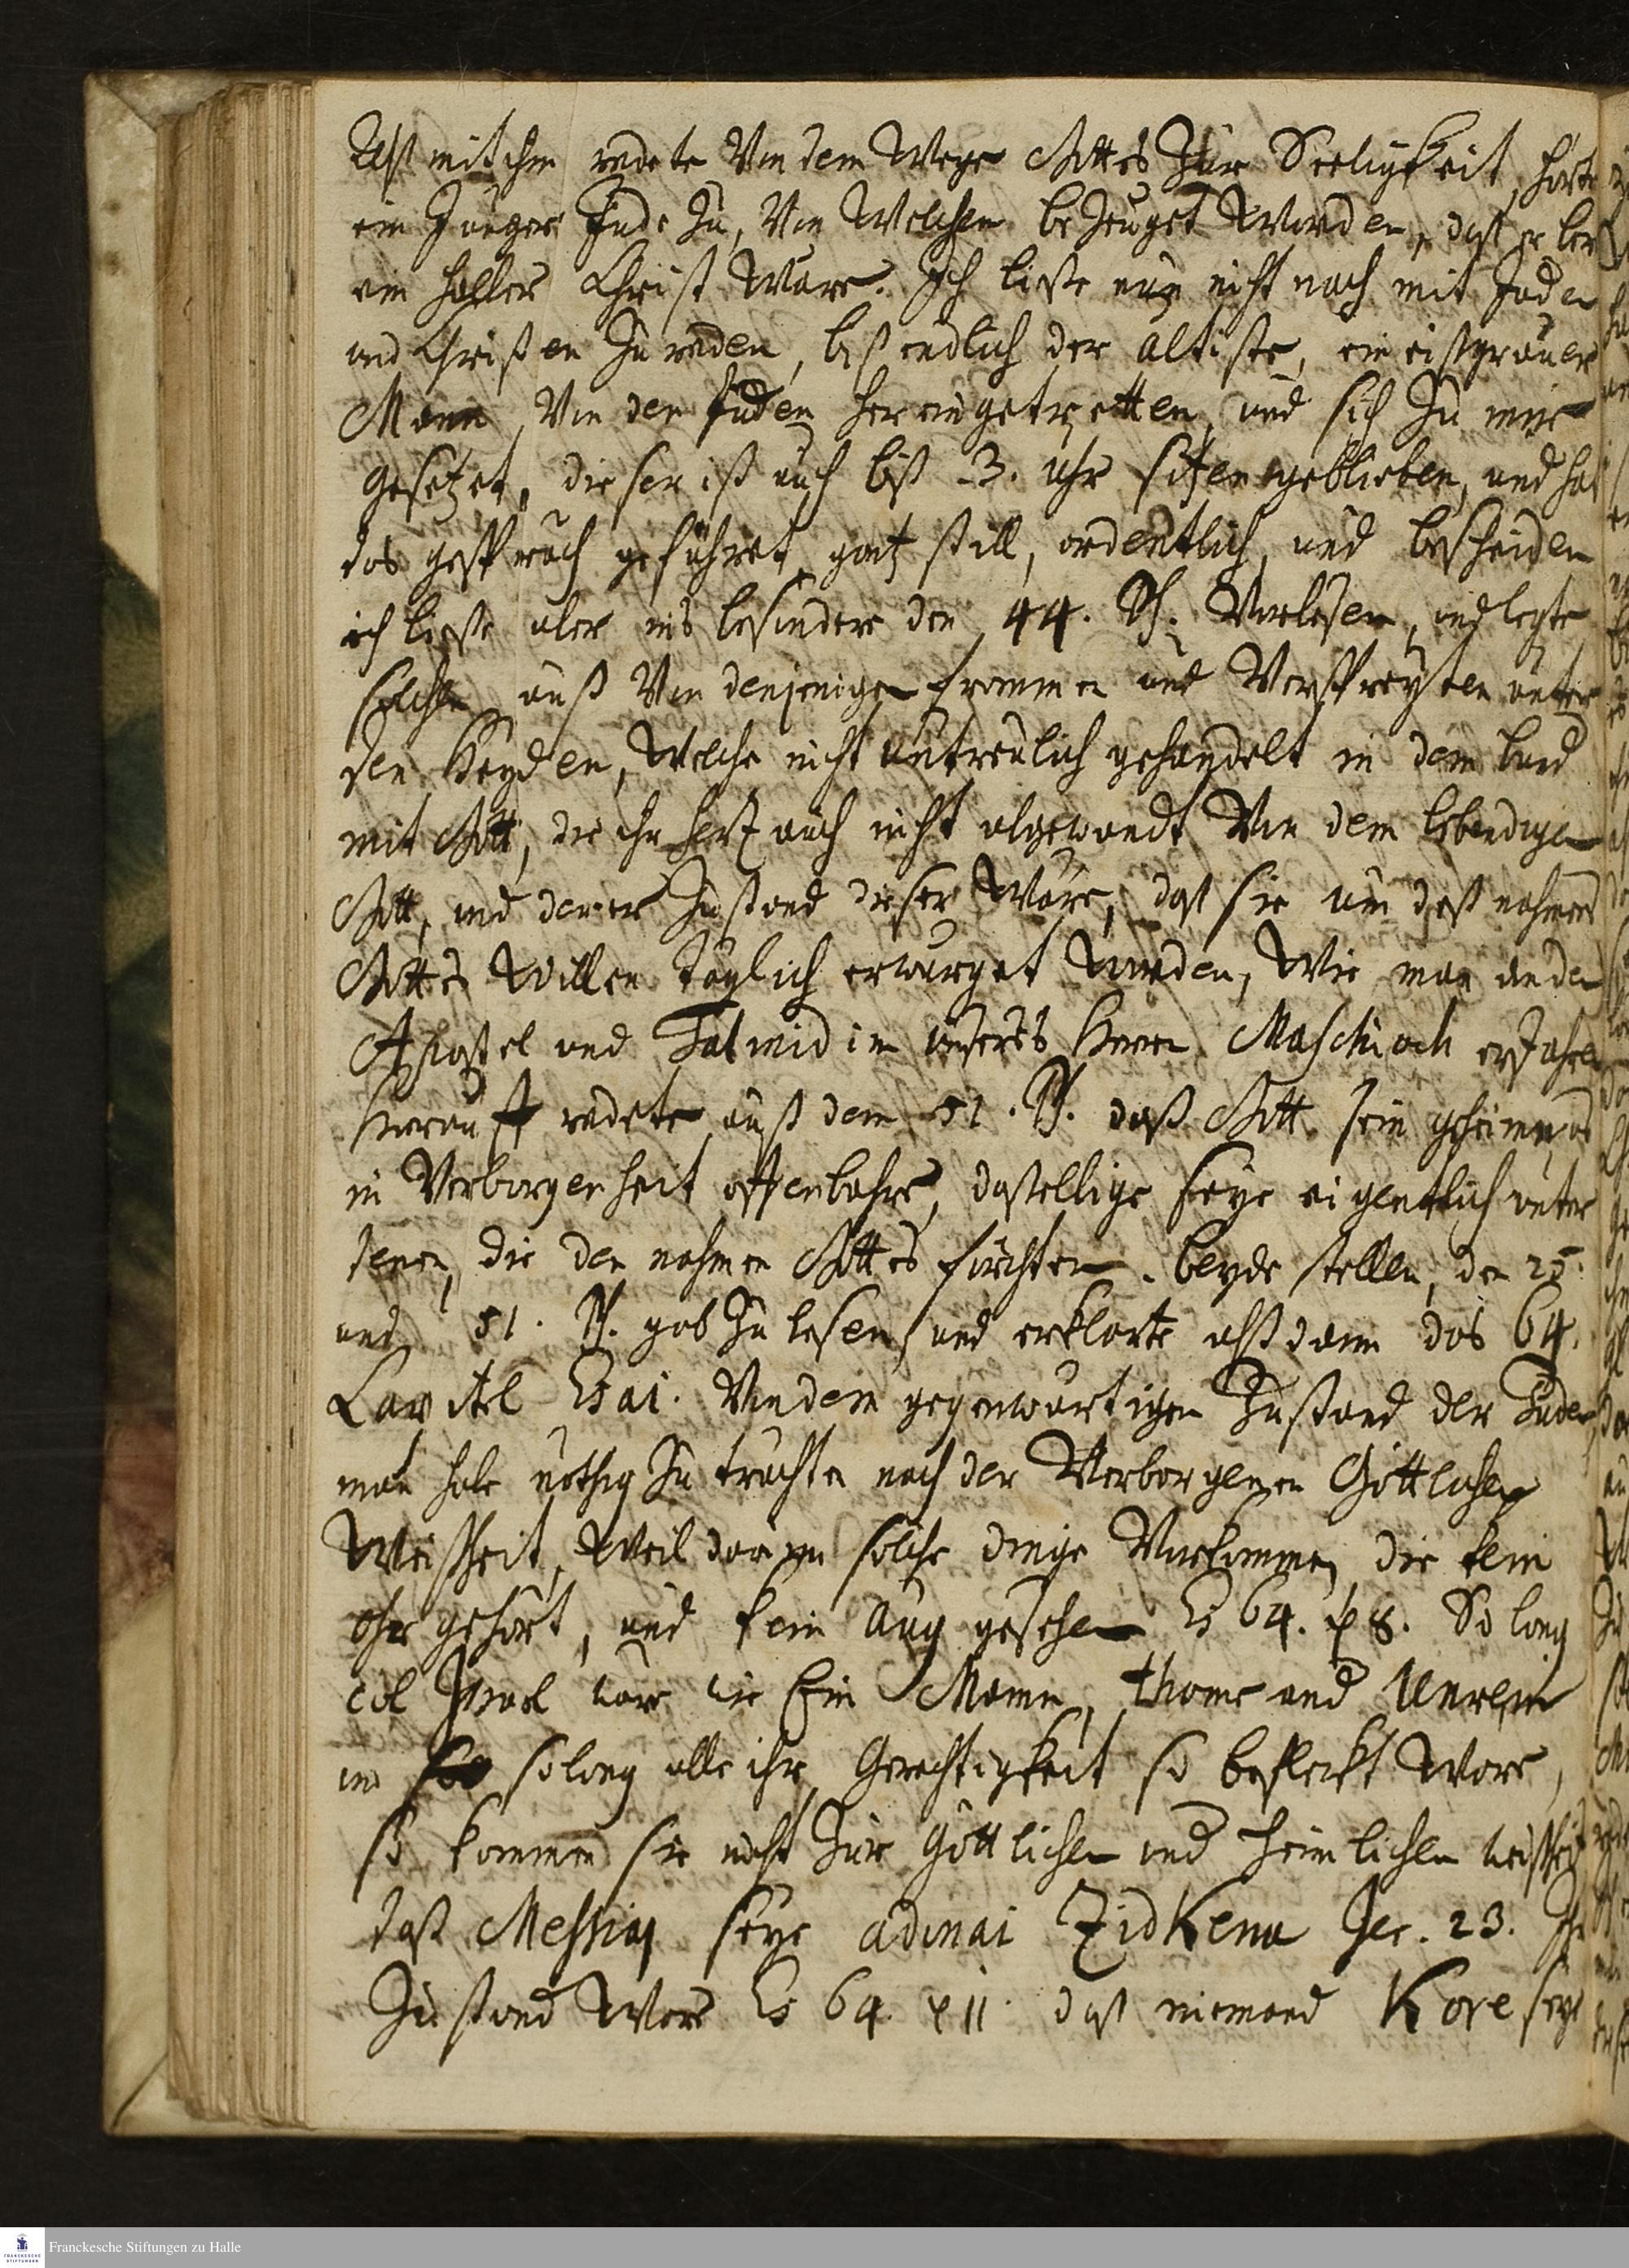 Alß mit ihm redete Von dem Wege Gottes Zur Seeligkeit, hörte
ein Junger Jude Zu, Von Welchem beZeuget Worden, daß er ber
ein halber Christ Ware. Ich ließe nun nicht nach mit Juden
und Christen Zu reden, biß endlich der altiste, ein eißgrauer
Mann, Von den Juden hereingetretten, und sich Zu mir
gesetzet, dieser ist auch biß 3. Uhr sitzen geblieben, und hat
das gespräch geführet, gantz still, ordentlich, und bescheiden
ich ließe aber ins besondere den 44. Ps. Vorlesen, und legte
solchen auß Von denjenigen frommen und Verspreyten unter
den Heyden, Welche nicht untreulich gehandelt in dem bund
mit Gott, die ihr hertz auch nicht abgewandt Von dem lebendigen
Gott, und derer Zustand dieser Ware, daß sie um deß nahmens
Gottes Willen täglich erwürget Würden, Wie man an den
Apostel und Talmidim unsers Herrn Maschiach erfahren
hierauff redete auß dem 51. Ps. daß Gott sein geheimnus
in Verborgenheit offenbahre, dasellige seye eigentlich unter
denen, die den nahmen Gottes förchten. beyde stellen, den 25.
und 51. Ps. gab Zu lesen, und erklärte alßdann das 64.
Capitel Esai. Von dem gegenwärtigen Zustand der Juden,
man habe nöthig Zu trachten nach der Verborgenen Göttlichen
Weißheit, Weil darinn solche dinge Vorkommen, die kein
ohr gehört, und kein Aug gesehen Es 64. 8. So lang
col Israel ware wie Ein Mann, thome und Unrein
und solang alle ihr Gerechtigkeit so befleckt Ware,
so kommen sie nicht Zur Göttlichen und heimlichen weißheit
daß Messias seye adonai Zidkenu Jer. 23. Ihr
Zustand Ware Es 64. 11. daß niemand Kore seye